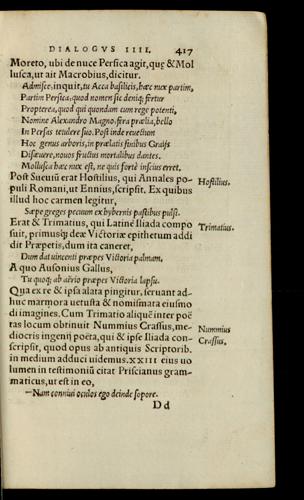 DIALOGVS IIII. 417
Moreto, ubi de nuce Persica agit, quę & Mol
lusca, ut ait Macrobius, dicitur.
Admisce, inquit, tu Acca basilicis, hæc nux partim,
Partim Persica: quod nomen sic deniq; fertur
Propterea, quod qui quondam cum rege potenti,
Nomine Alexandro Magno, fera prælia, bello
In Persas tetulere suo. Post inde reuectum
Hoc genus arboris, in prælatis finibus Graijs
Diseuere, nouos fructus mortalibus dantes.
Mollusca hæc nux est, ne quis fortè inscius erret.
Post Sueuiũ erat Hostilius, qui Annales po
puli Romani, ut Ennius, scripsit. Ex quibus
illud hoc carmen legitur,
Hostilius.
Sæpe greges pecuum ex hybernis pastibus pulsi.
Erat & Trimatius, qui Latinè Iliada compo
suit, primusq́; deæ Victoriæ epithetum addi
dit Præpetis, dum ita caneret,
Trimatius.
Dum dat uincenti præpes Victoria palmam,
A quo Ausonius Gallus,
Tu quoq; ab aërio præpes Victoria lapsu.
Qua ex re & ipsa alata pingitur, seruant ad-
huc marmora uetusta & nomismata eiusmo
di imagines. Cum Trimatio aliquẽ inter poë
tas locum obtinuit Nummius Crassus, me-
diocris ingenij poëta, qui & ipse Iliada con-
scripsit, quod opus ab antiquis Scriptorib.
in medium adduci uidemus. XXIII eius uo
lumen in testimoniũ citat Priscianus gram-
maticus, ut est in eo,
Nummius
Crassus.
—Nam conniui oculos ego deinde sopore.
Dd